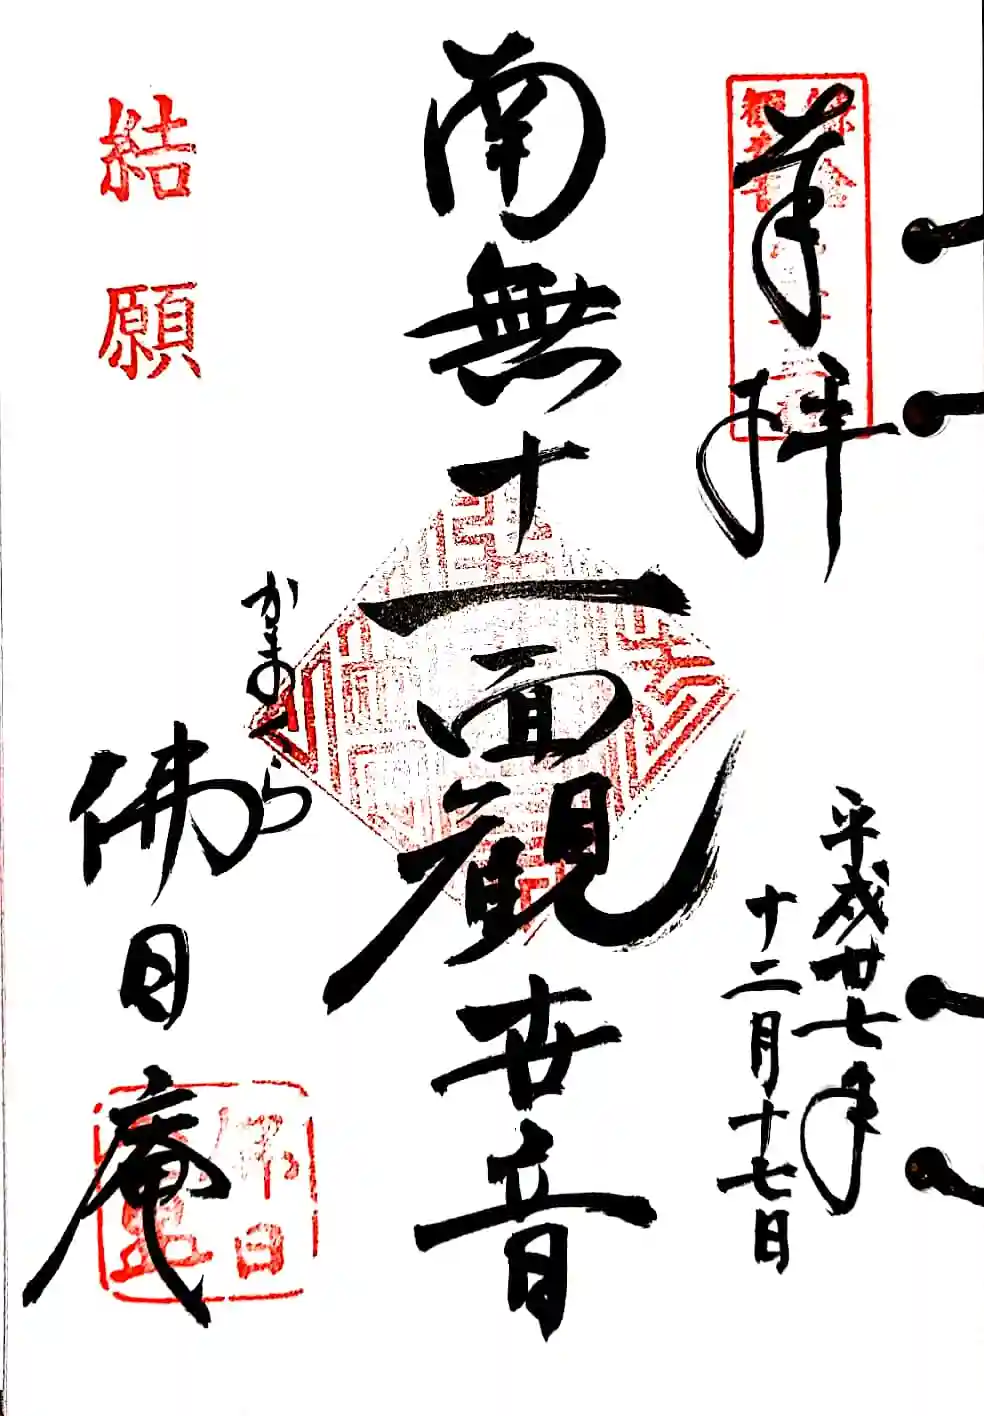 奉拝
平成廿七年
十二月十七日
南無十一面観世音
かまくら
佛日庵
結願
佛日